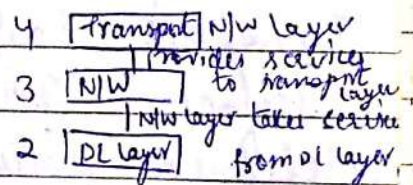 4 Transport N/W layer
provides service
3 N/W to transport layer
N/W layer takes service
2 DL layer from DL layer,